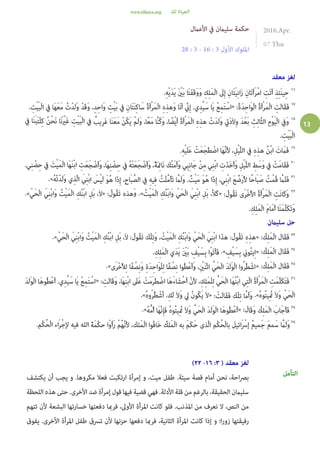 الحياة لك www.elhaya.org
2016.Apr.
07 Thu
حكمة سليمان في الأعمال
الملوك الأول 3 : 16 - 3 : 28
13
لغز معقد
١٦ حِينَئِذٍ أَتَتِ امْرَأَتَانِ زَانِيَتَانِ إِلَى الْمَلِكِ وَوَقَفَتَا بَيْنَ يَدَيْهِ.
١٧ فَقَالَتِ الْمَرْأَةُ الْوَاحِدَةُ: «اسْتَمِعْ يَا سَيِّدِي. إِنِّي أَنَا وَهذِهِ الْمَرْأَةُ سَاكِنَتَانِ فِي بَيْتٍ وَاحِدٍ، وَقَدْ وَلَدْتُ مَعَهَا فِي الْبَيْتِ.
١٨ وَفِي الْيَوْمِ الثَّالِثِ بَعْدَ وِلاَدَتِي وَلَدَتْ هذِهِ الْمَرْأَةُ أَيْضًا، وَكُنَّا مَعًا، وَلَمْ يَكُنْ مَعَنَا غَرِيبٌ فِي الْبَيْتِ غَيْرَنَا نَحْنُ كِلْتَيْنَا فِي الْبَيْتِ.
١٩ فَمَاتَ ابْنُ هذِهِ فِي اللَّيْلِ، لأَنَّهَا اضْطَجَعَتْ عَلَيْهِ.
٢٠ فَقَامَتْ فِي وَسَطِ اللَّيْلِ وَأَخَذَتِ ابْنِي مِنْ جَانِبِي وَأَمَتُكَ نَائِمَةٌ، وَأَضْجَعَتْهُ فِي حِضْنِهَا، وَأَضْجَعَتِ ابْنَهَا الْمَيْتَ فِي حِضْنِي.
٢١ فَلَمَّا قُمْتُ صَبَاحًا لأُرَضِّعَ ابْنِي، إِذَا هُوَ مَيْتٌ. وَلَمَّا تَأَمَّلْتُ فِيهِ فِي الصَّبَاحِ، إِذَا هُوَ لَيْسَ ابْنِيَ الَّذِي وَلَدْتُهُ».
٢٢ وَكَانَتِ الْمَرْأَةُ الأُخْرَى تَقُولُ: «كَلاَّ، بَلِ ابْنِيَ الْحَيُّ وَابْنُكِ الْمَيْتُ». وَهذِهِ تَقُولُ: «لاَ، بَلِ ابْنُكِ الْمَيْتُ وَابْنِيَ الْحَيُّ». وَتَكَلَّمَتَا أَمَامَ الْمَلِكِ.
حل سليمان
٢٣ فَقَالَ الْمَلِكُ: «هذِهِ تَقُولُ: هذَا ابْنِيَ الْحَيُّ وَابْنُكِ الْمَيْتُ، وَتِلْكَ تَقُولُ: لاَ، بَلِ ابْنُكِ الْمَيْتُ وَابْنِيَ الْحَيُّ».
٢٤ فَقَالَ الْمَلِكُ: «إِيتُونِي بِسَيْفٍ». فَأَتَوْا بِسَيْفٍ بَيْنَ يَدَيِ الْمَلِكِ.
٢٥ فَقَالَ الْمَلِكُ: «اشْطُرُوا الْوَلَدَ الْحَيَّ اثْنَيْنِ، وَأَعْطُوا نِصْفًا لِلْوَاحِدَةِ وَنِصْفًا لِلأُخْرَى».
٢٦ فَتَكَلَّمَتِ الْمَرْأَةُ الَّتِي ابْنُهَا الْحَيُّ إِلَى الْمَلِكِ، لأَنَّ أَحْشَاءَهَا اضْطَرَمَتْ عَلَى ابْنِهَا، وَقَالَتْ: «اسْتَمِعْ يَا سَيِّدِي. أَعْطُوهَا الْوَلَدَ الْحَيَّ وَلاَ تُمِيتُوهُ». وَأَمَّا تِلْكَ فَقَالَتْ: «لاَ يَكُونُ لِي وَلاَ لَكِ. اُشْطُرُوهُ».
٢٧ فَأَجَابَ الْمَلِكُ وَقَالَ: «أَعْطُوهَا الْوَلَدَ الْحَيَّ وَلاَ تُمِيتُوهُ فَإِنَّهَا أُمُّهُ».
٢٨ وَلَمَّا سَمِعَ جَمِيعُ إِسْرَائِيلَ بِالْحُكْمِ الَّذِي حَكَمَ بِهِ الْمَلِكُ خَافُوا الْمَلِكَ، لأَنَّهُمْ رَأَوْا حِكْمَةَ اللهِ فِيهِ لإِجْرَاءِ الْحُكْمِ.
التأمل
لغز معقد ( ٣: ١٦- ٢٢)
بصراحة، نحن أمام قصة سيئة. طفل ميت، و إمرأة ارتكبت فعلا مكروها. و يجب أن يكتشف
سليمان الحقيقة، بالرغم من قلة الأدلة. فهي قضية فيها قول إمرأة ضد الأخرى. حتى هذه اللحظة
من النص، لا نعرف من المذنب. فلو كانت المرأة الأولى، فربما دفعتها خسارتها البشعة لأن تتهم
رفيقتها زورا؛ و إذا كانت المرأة الثانية، فربما دفعها حزنها لأن تسرق طفل المرأة الأخرى. يفوق